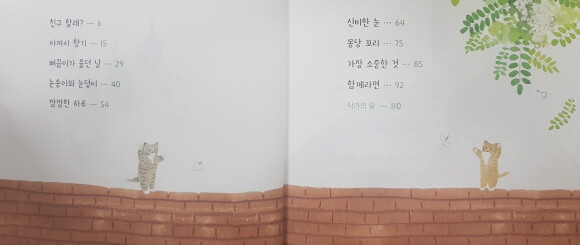 친구 할래? … 6
아까시 향기 … 15
뻐끔이가 울던 날 … 29
눈송이와 눈덩이 … 40
깜깜한 하루 … 54
신비한 눈 … 64
몽당 꼬리 … 75
가장 소중한 것 … 85
함께라면 … 92
작가의 말 … 110